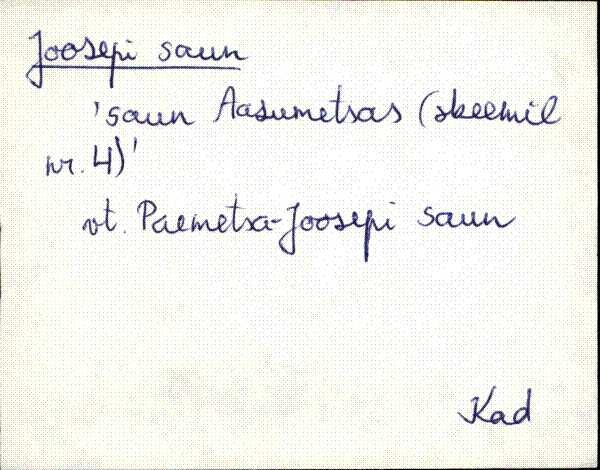 Joosepi saun
'saun Aasumetsas (skeemil
nr. 4)'
vt. Paemetsa-Joosepi saun
Kad